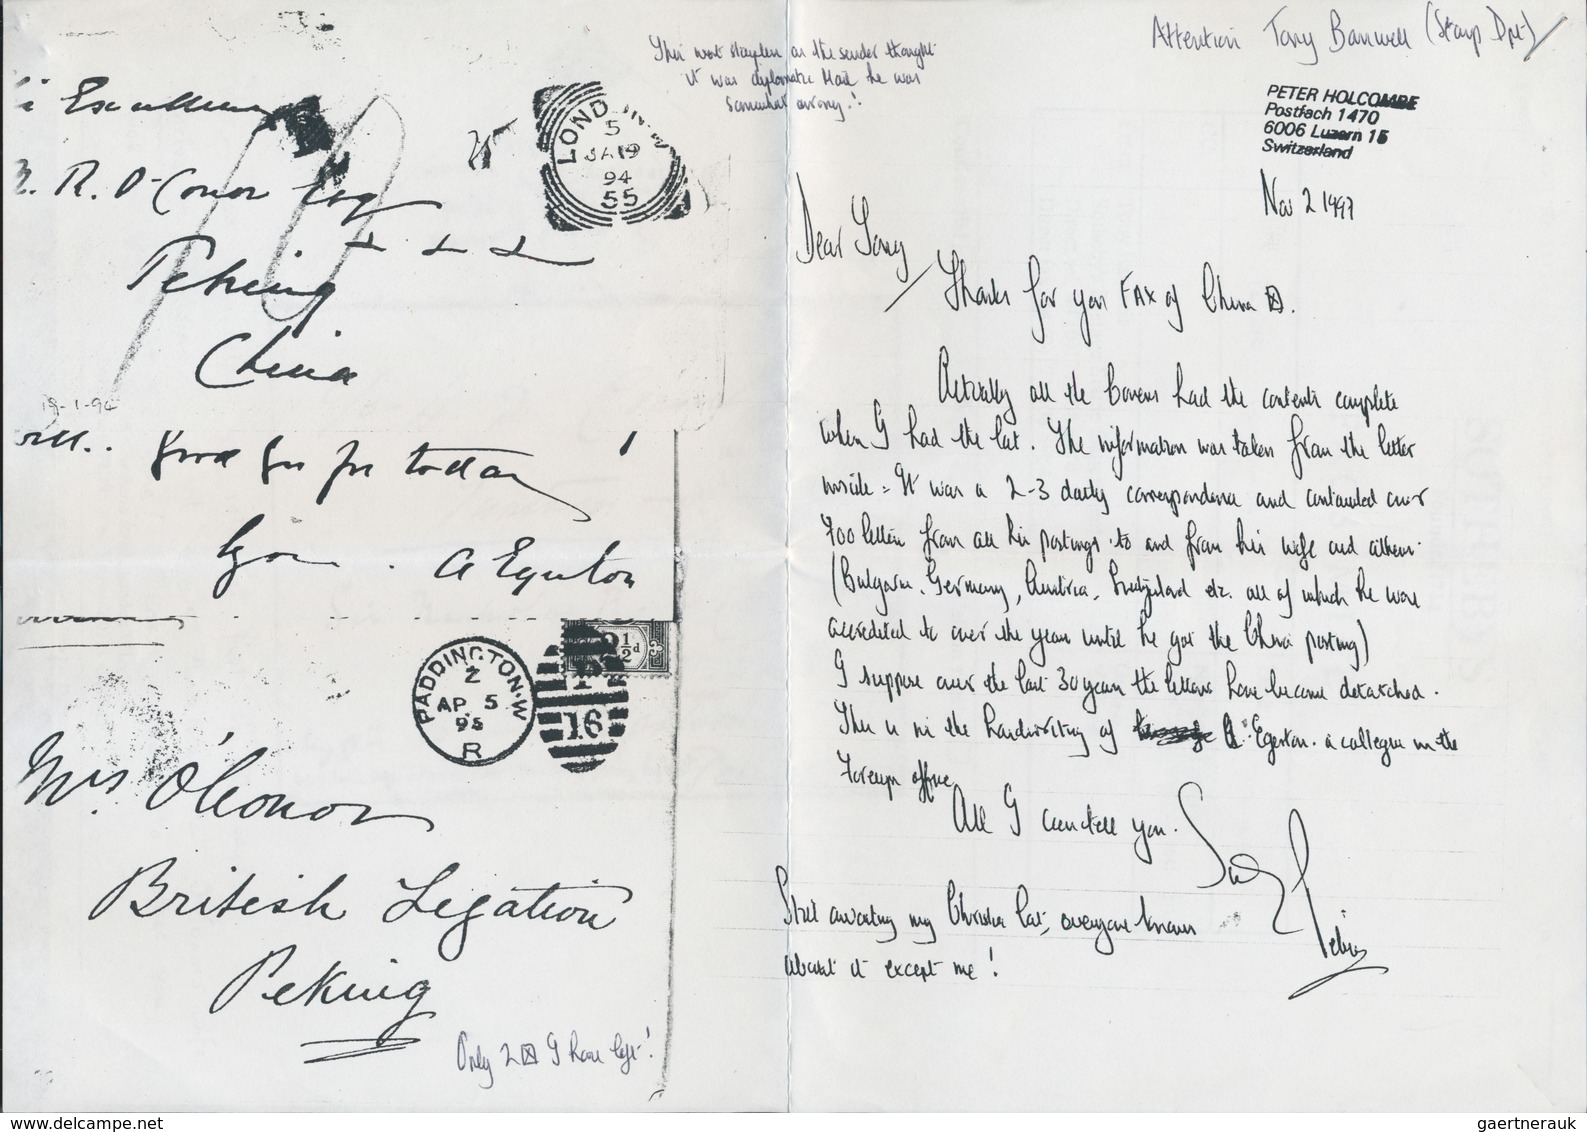 This went stampless as the sender thought
it was diplomatic Mail he was
somewhat wrong.!
Excellency
R. O'Conor Esq
Peking
China
19-1-94
LONDON.W
5
JA 19
94
55
Good bye for today!
A Egerton
PADDINGTON.W
Z
AP 5
95
R
16
2½d
Mrs. O'Conor
British Legation
Peking
Only 2 ⊠ I have left!
Attention Tony Banwell (Stamp Dpt)
PETER HOLCOMBE
Postfach 1470
6006 Luzern 15
Switzerland
Nov 2 1997
Dear Tony
Thanks for your FAX of China ⊠.
Actually all the Covers had the contents complete
when I had the lot. The information was taken from the letter
inside = It was a 2-3 daily correspondence and contained over
700 letters from all his postings to and from his wife and others.
(Bulgaria, Germany, Austria, Switzerland etc. all of which he was
accredited to over the years until he got the China posting)
I suppose over the last 30 years the letters have become detatched.
This is in the handwriting of A. Egerton. a collegue in the
Foreign office
All I can tell you.
Peter
Still awaiting my Christies Cat, everyone knows
about it except me!
gaertnerauk